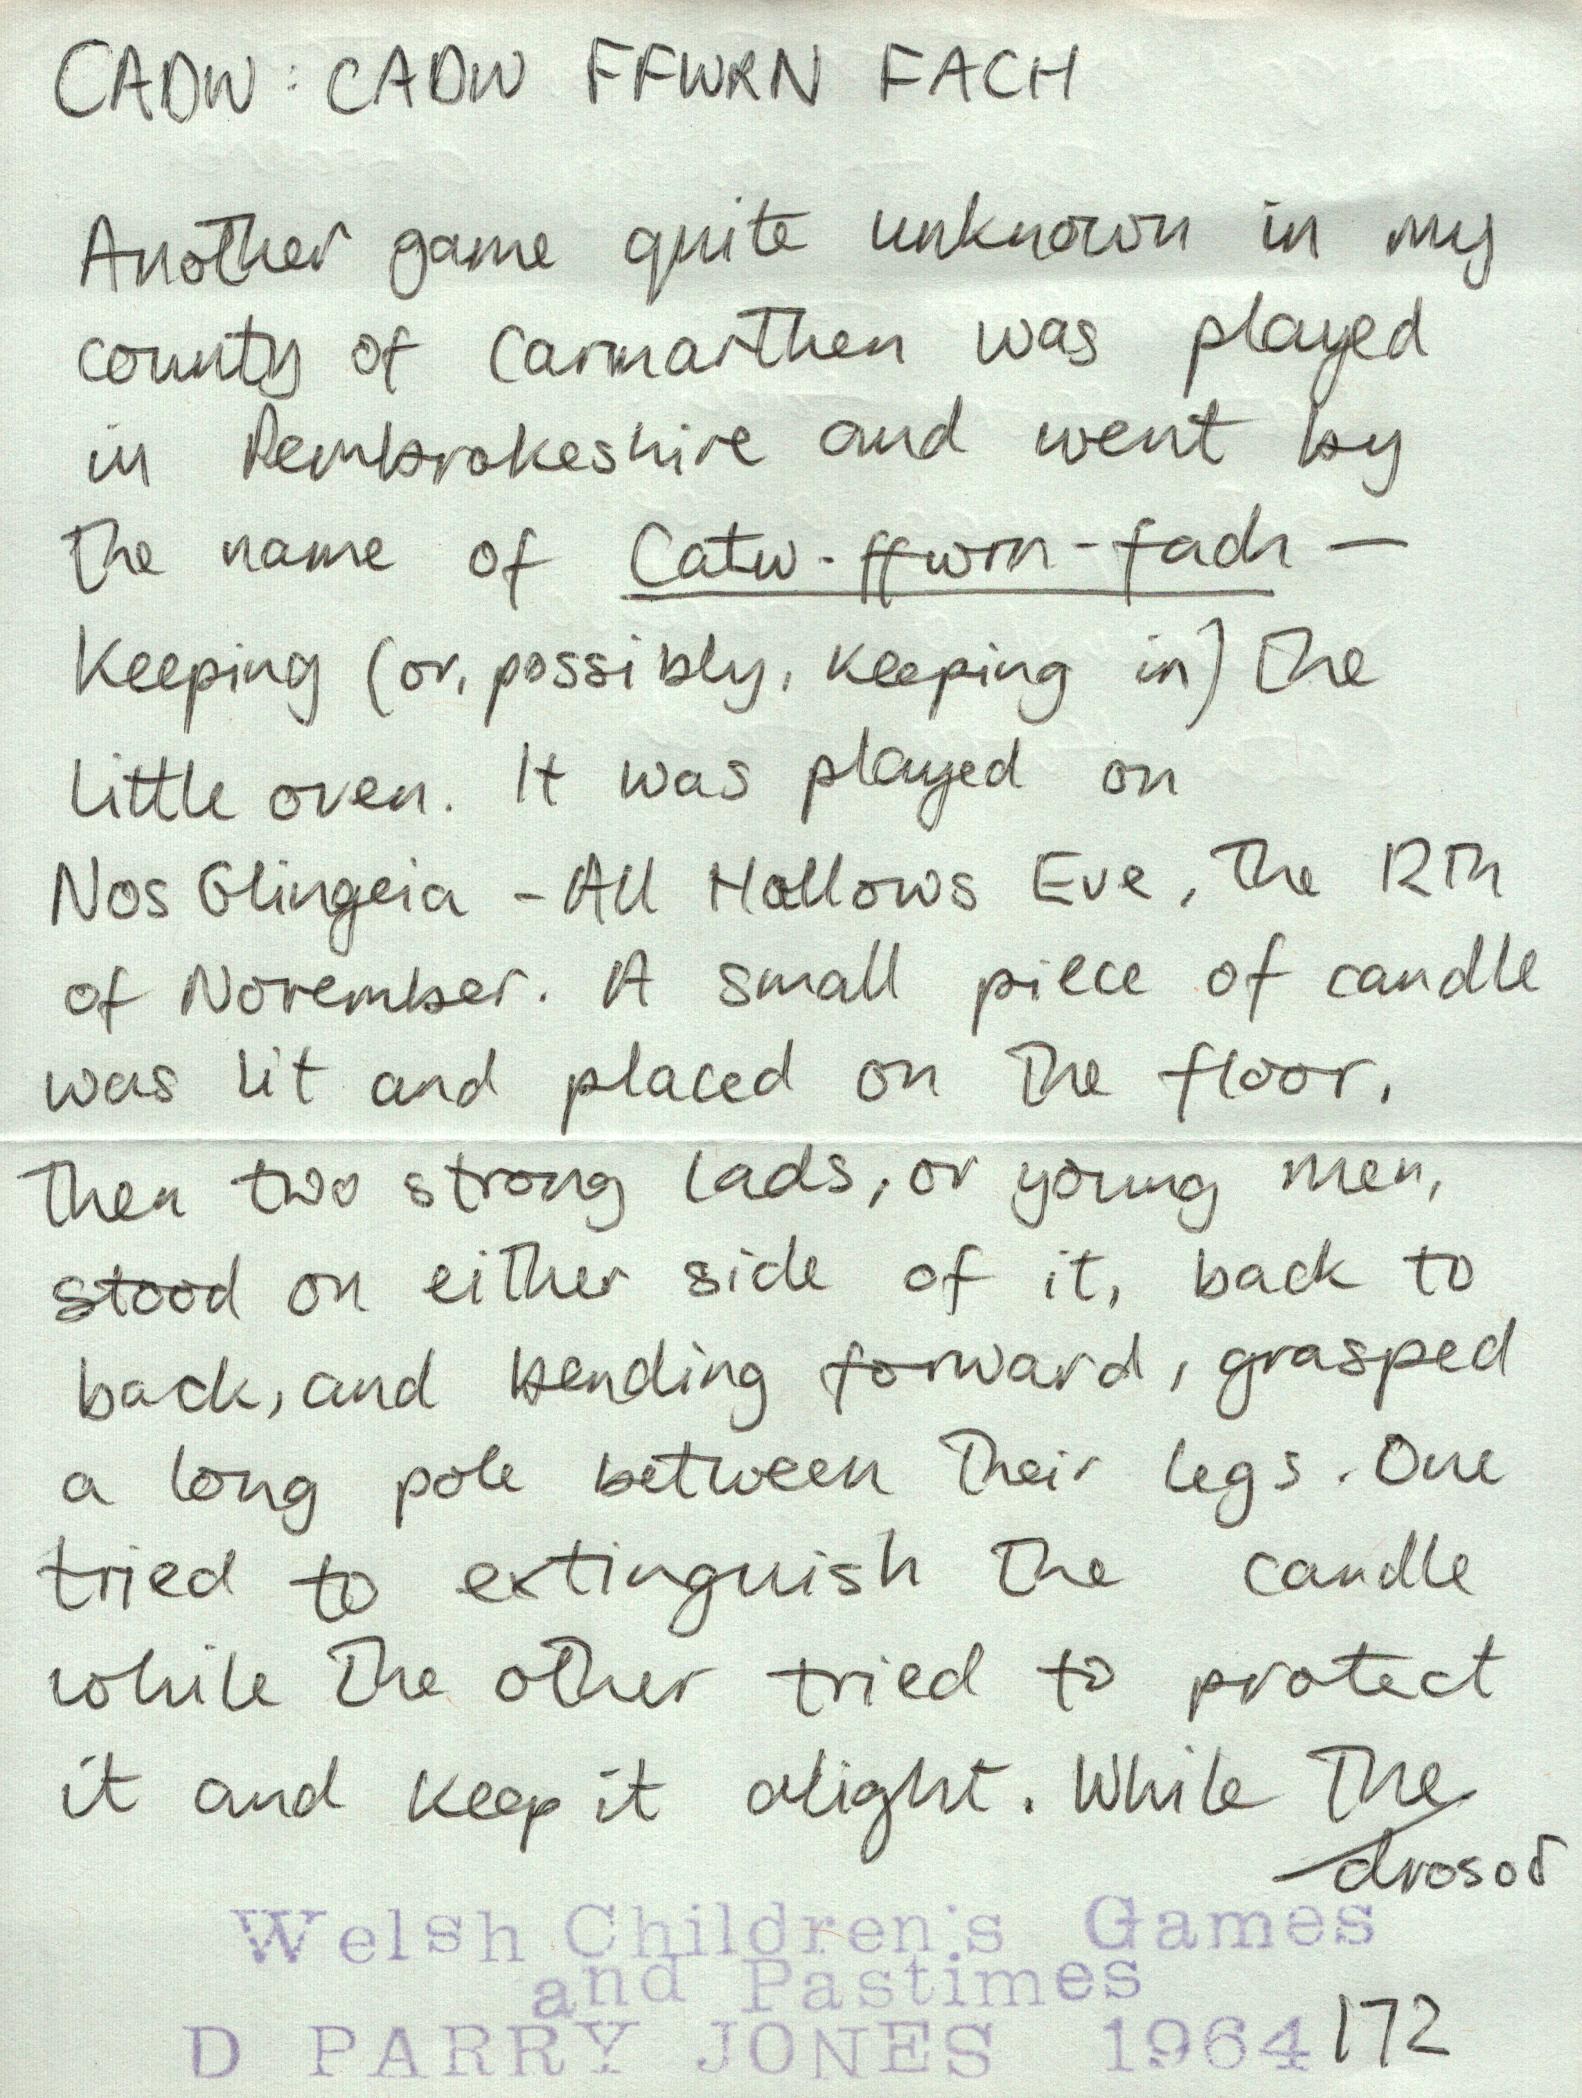 CADW : CADW FFWRN FACH
Another game quite unknown in my
county of Carmarthen was played
in Pembrokeshire and went by
the name of Catw-ffwrn-fach —
Keeping (or, possibly, keeping in) the
little oven. It was played on
Nos Glingeia - All Hallows Eve, the 12th
of November. A small piece of candle
was lit and placed on the floor,
then two strong lads, or young men,
stood on either side of it, back to
back, and bending forward, grasped
a long pole between their legs. One
tried to extinguish the candle
while the other tried to protect
it and keep it alight. While the
drosod
Welsh Children's Games
and Pastimes
D PARRY JONES 1964 172